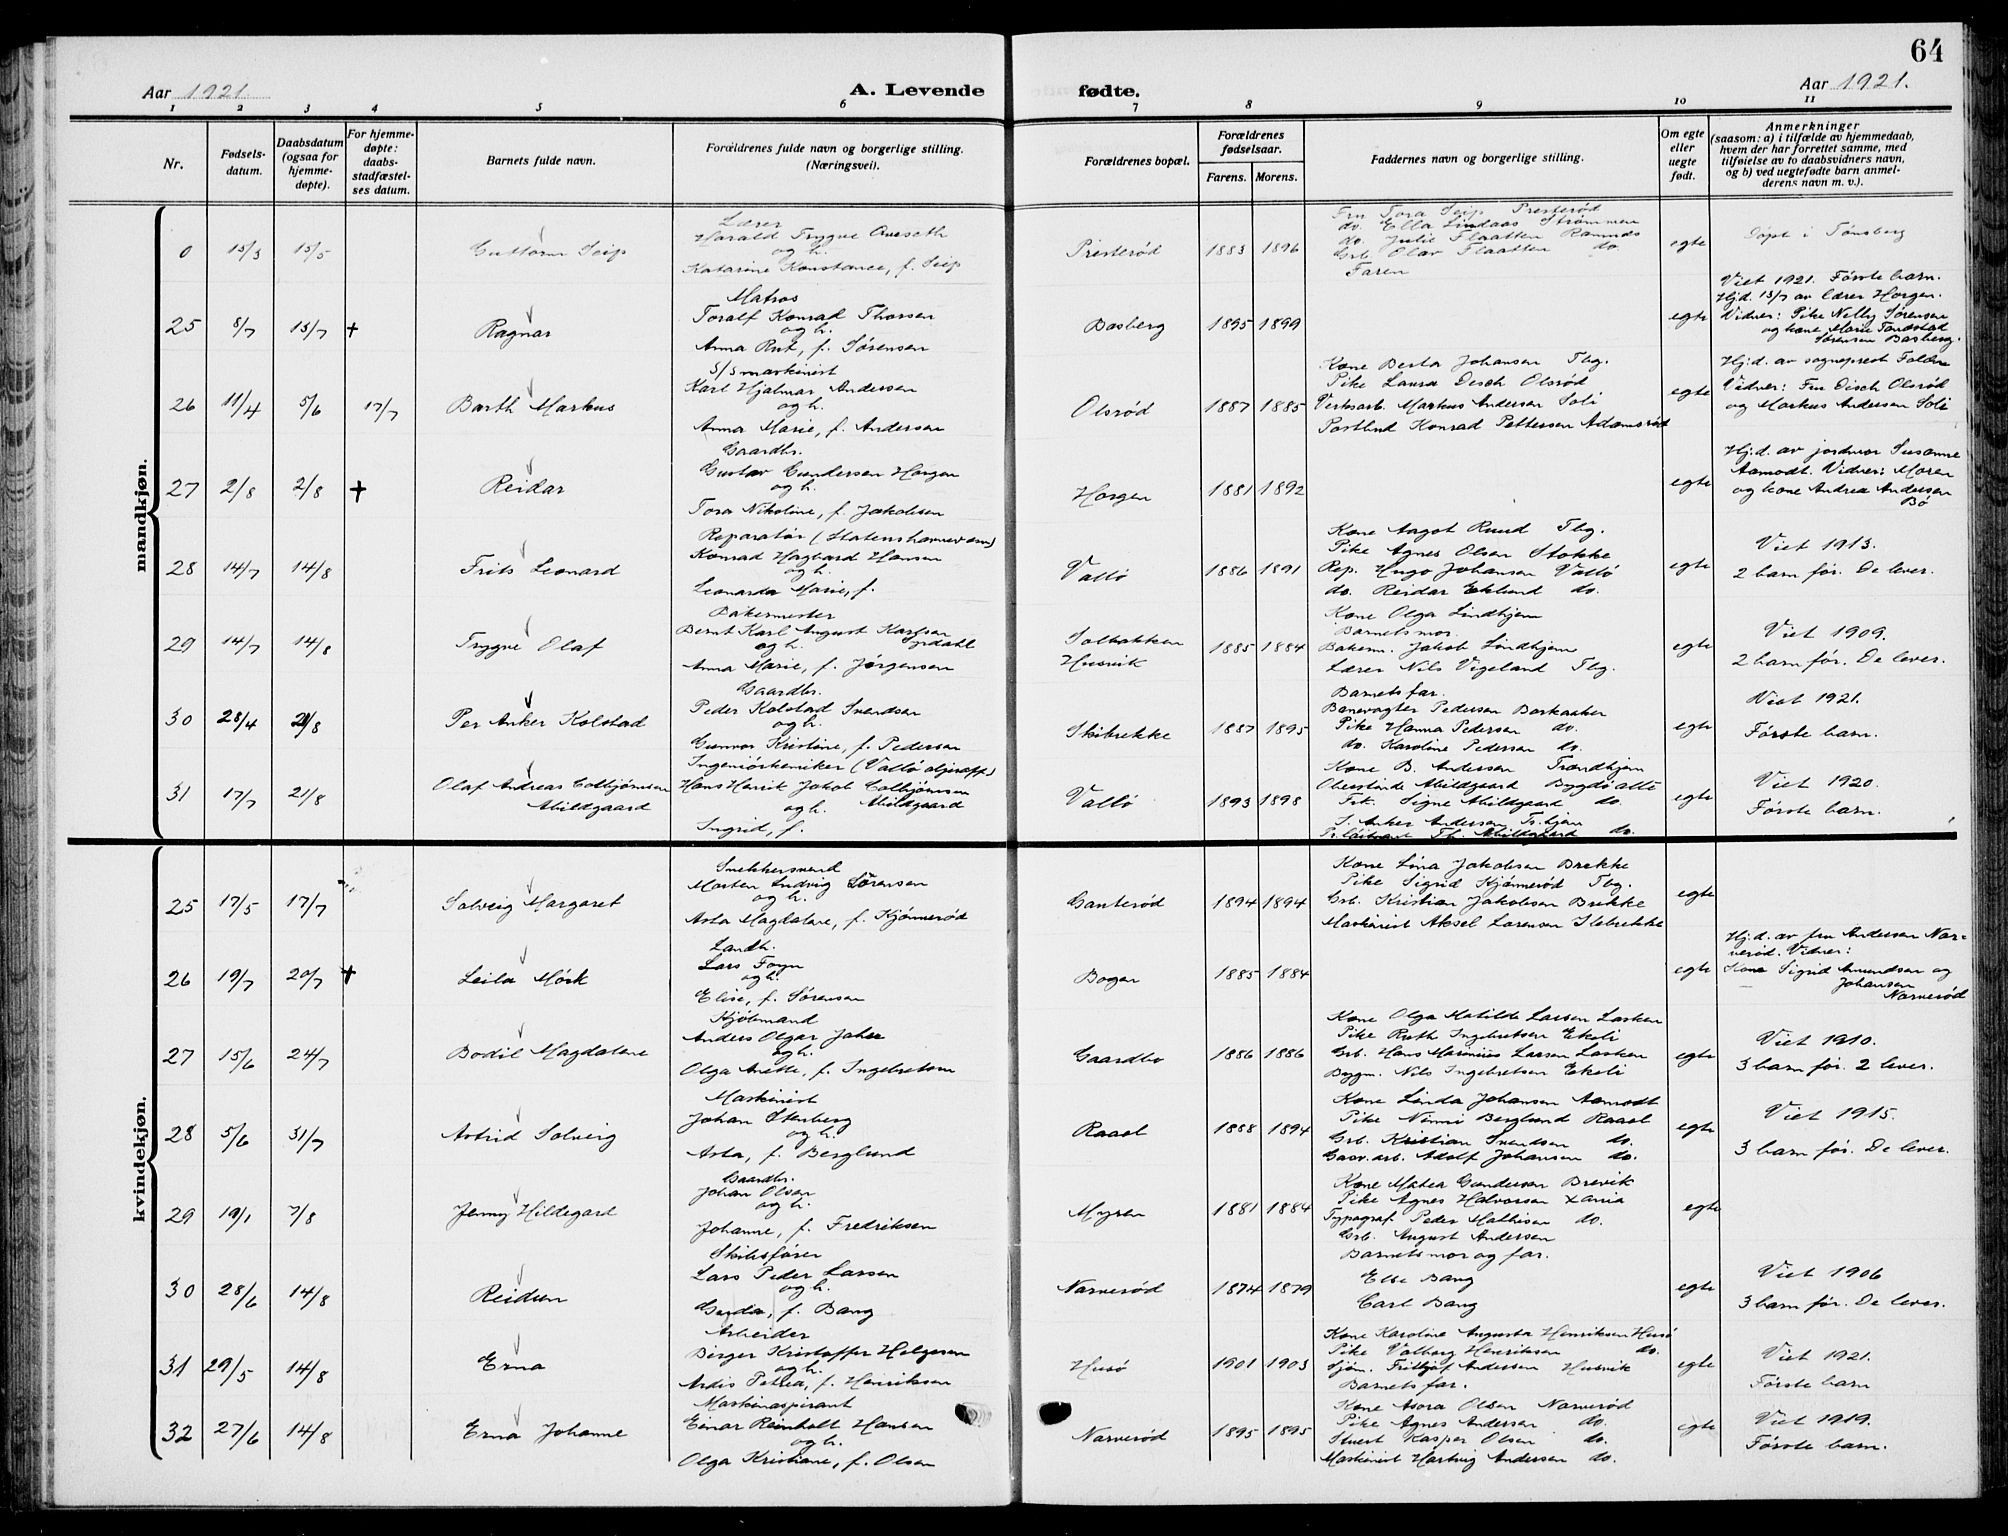 64
Aar 1921.
A. Levende fødte.
Aar 1921.
1 2 3 4 5 6 7 8 9 10 11
Nr.
Fødsels-
datum.
Daabsdatum
(ogsaa for
hjemme-
døpte).
For hjemme-
døpte:
daabs-
stadfæstel-
ses datum.
Barnets fulde navn.
Forældrenes fulde navn og borgerlige stilling.
(Næringsvei).
Forældrenes bopæl.
Forældrenes
fødselsaar.
Farens. Morens.
Faddernes navn og borgerlige stilling.
Om egte
eller
uegte
født.
Anmerkninger
(saasom: a) i tilfælde av hjemmedaab,
hvem der har forrettet samme, med
tilføielse av to daabsvidners navn,
og b) ved uegtefødte barn anmel-
derens navn m. v.).
mandkjøn.
0 15/3 15/5 Guttorm Seip
Lærer
Harald Trygve Aveseth
og h.
Katarine Konstance, f. Seip
Presterød 1883 1896
Fru Tora Seip Presterød
do. Ella Lindaas Strømmen
do. Julie Flaatten Ramnes
Grb. Olav Flaatten do.
Faren
egte
Døpt i Tønsberg
25 8/7 13/7 + Ragnar
Matros
Toralf Konrad Thorsen
og h.
Anna Rut, f. Sørensen
Basberg 1895 1899
egte
Viet 1921. Første barn.
Hjd. 13/7 av lærer Horgen.
Vidner: Pike Nelly Sørensen
og kone Marie Tandstad
Sørensen Basberg.
26 11/4 5/6 17/7 Barth Markus
S/S maskinist
Karl Hjalmar Andersen
og h.
Anna Marie, f. Andersen
Olsrød 1887 1885
Kone Berta Johansen Tbg.
Pike Laura Disch Olsrød
Verksarb. Markus Andersen Soli
Postbud Konrad Pettersen Adamsrød
egte
Hj.d. av sogneprest Falden
Vidner: Fru Disch Olsrød
og Markus Andersen Soli
27 2/8 2/8 + Reidar
Gaardbr.
Gustav Gundersen Horgen
og h.
Tora Nikoline, f. Jakobsen
Horgen 1881 1892
egte
Hj.d. av jordmor Susanne
Aamodt. Vidner: Moren
og kone Andrea Andersen
Bø
28 14/7 14/8 Frits Leonard
Reparatør (Statens havnevæsen)
Konrad Hagbard Hansen
og h.
Leonarda Marie, f.
Vallø 1886 1891
Kone Aagot Ruud Tbg.
Pike Agnes Olsen Stokke
Rep. Hugo Johansen Vallø
do. Reidar Eklund do.
egte
Viet 1913.
2 barn før. De lever.
29 14/7 14/8 Trygve Olaf
Bakermester
Bernt Karl August Karlsen
og h.
Anna Marie, f. Jørgensen
Solbakken
Husvik
1885 1884
Kone Olga Lindhjem
Barnets mor.
Bakerm. Jakob Lindhjem
Lærer Nils Vigeland Tbg.
egte
Viet 1909.
2 barn før. De lever.
30 28/4 21/8 Per Anker Kolstad
Gaardbr.
Peder Kolstad Svendsen
og h.
Gunvor Kristine, f. Pedersen
Skibrekke 1887 1895
Barnets far.
Banevogter Pedersen Barkaaker
Pike Hanna Pedersen do.
do. Karoline Pedersen do.
egte
Viet 1921.
Første barn.
31 17/7 21/8 Olaf Andreas Colbjørnsen
Abildgaard
Ingeniørkemiker (Vallø oljeraff.)
Hans Henrik Jakob Colbjørnsen
og h. Abildgaard
Ingrid, f.
Vallø 1893 1898
Kone B. Andersen Trondhjem
Oberstinde Abildgaard Bygdø allé
Frk. Signe Abildgaard do.
S. Anker Andersen Tr.hjem
Pr.løitnant Th. Abildgaard do.
egte
Viet 1920.
Første barn.
kvindekjøn.
25 17/5 17/7 Solveig Margaret
Snekkersvend
Morten Ludvig Sørensen
og h.
Asta Magdalene, f. Kjønnerød
Ganterød 1894 1894
Kone Lina Jakobsen Brekke
Pike Sigrid Kjønnerød Tbg.
Grb. Kristian Jakobsen Brekke
Maskinist Aksel Lorensen Ilebrekke
egte
26 19/7 20/7 + Leila Mørk
Landh.
Lars Foyn
og h.
Elise, f. Sørensen
Bogen 1885 1884
egte
Hj.d. av fru Andersen Nar-
verød. Vidner:
Kone Sigrid Amundsen og
Johansen
Narverød
27 15/6 24/7 Bodil Magdalene
Kjøbmand
Anders Olgar Jahre
og h.
Olga Anette, f. Ingebretsen
Gaardbo 1886 1886
Kone Olga Matilde Larsen Lasken
Pike Ruth Ingebretsen Ekeli
Grb. Hans Marinius Larsen Lasken
Bygm. Nils Ingebretsen Ekeli
egte
Viet 1910.
3 barn før. 2 lever.
28 5/6 31/7 Astrid Solveig
Maskinist
Johan Stenberg
og h.
Asta, f. Berglund
Raael 1888 1894
Kone Linda Johansen Aamodt
Pike Nimi Berglund Raael
Grb. Kristian Svendsen do.
Gasv.arb. Adolf Johansen do.
egte
Viet 1915.
3 barn før. De lever.
29 19/1 7/8 Jenny Hildegard
Gaardbr.
Johan Olsen
og h.
Johanne, f. Fredriksen
Myren 1881 1884
Kone Matea Gundersen Brevik
Pike Agnes Halvorsen Xania
Typograf Peder Mathisen do.
Grb. August Andersen
Barnets mor og far.
egte
30 28/6 14/8 Reidun
Skibsfører
Lars Peder Larsen
og h.
Gerda, f. Bang
Narverød 1874 1879
Else Bang
Carl Bang
egte
Viet 1906
3 barn før. De lever.
31 29/5 14/8 Erna
Arbeider
Birger Kristoffer Helgesen
og h.
Ardis Petrea, f. Henriksen
Husø 1901 1903
Kone Karoline Augusta Henriksen Husø
Pike Valborg Henriksen do.
Sjøm. Fritjof Andersen Husvik
Barnets far.
egte
Viet 1921.
Første barn
32 27/6 14/8 Erna Johanne
Maskinaspirant
Einar Reinholt Hansen
og h.
Olga Kristiane, f. Olsen
Narverød 1895 1895
Kone Asora Olsen Narverød
Pike Agnes Andersen do.
Stuert Kasper Olsen do.
Maskinist Hartvig Andersen do.
egte
Viet 1919.
Første barn.